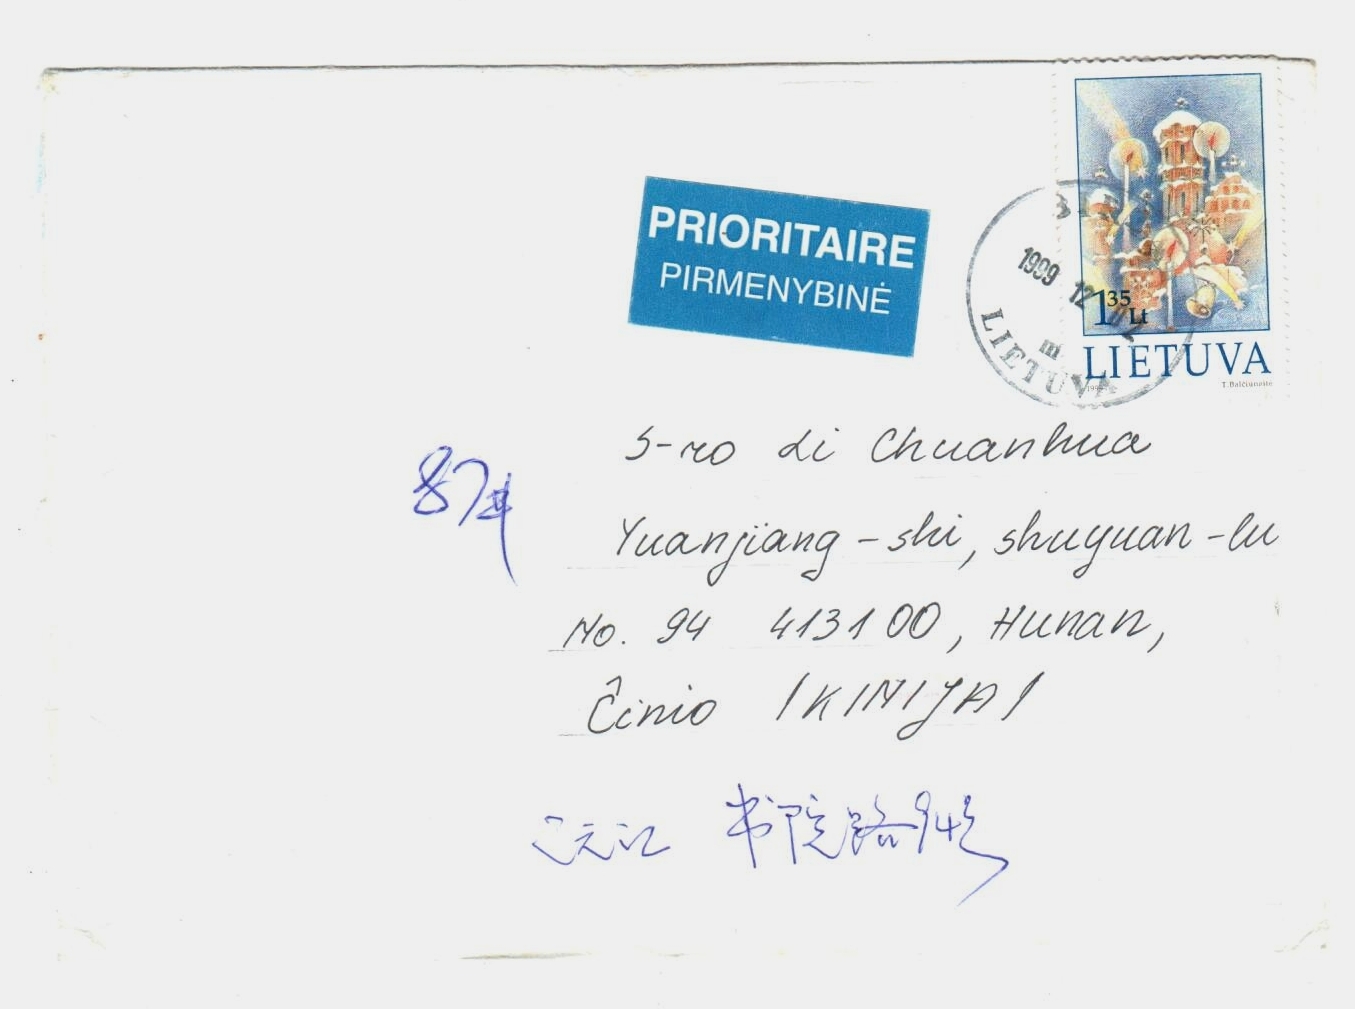 PRIORITAIRE
PIRMENYBINĖ
1999 12
m
LIETUVA
1 35 Lt
LIETUVA
T. Balčiūnaitė
S-ro Li Chuanhua
Yuanjiang-shi, shuyuan-lu
No. 94 413100, Hunan,
Ĉinio /KINIJA/
沅江 书院路94号